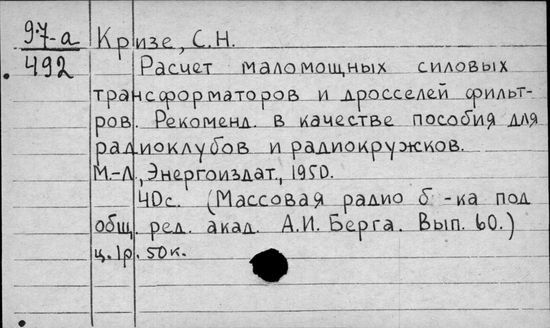 97-а Кризе, С.Н.
492 Расчет маломощных силовых
трансформаторов и дросселей фильт-
ров. Рекоменд. в качестве пособия для
радиоклубов и радиокружков.
М.-Л., Энергоиздат., 1950.
40с. (Массовая радио б-ка под
общ. ред. акад. А.И. Берга. Вып. 60.)
ц. 1р. 50к.